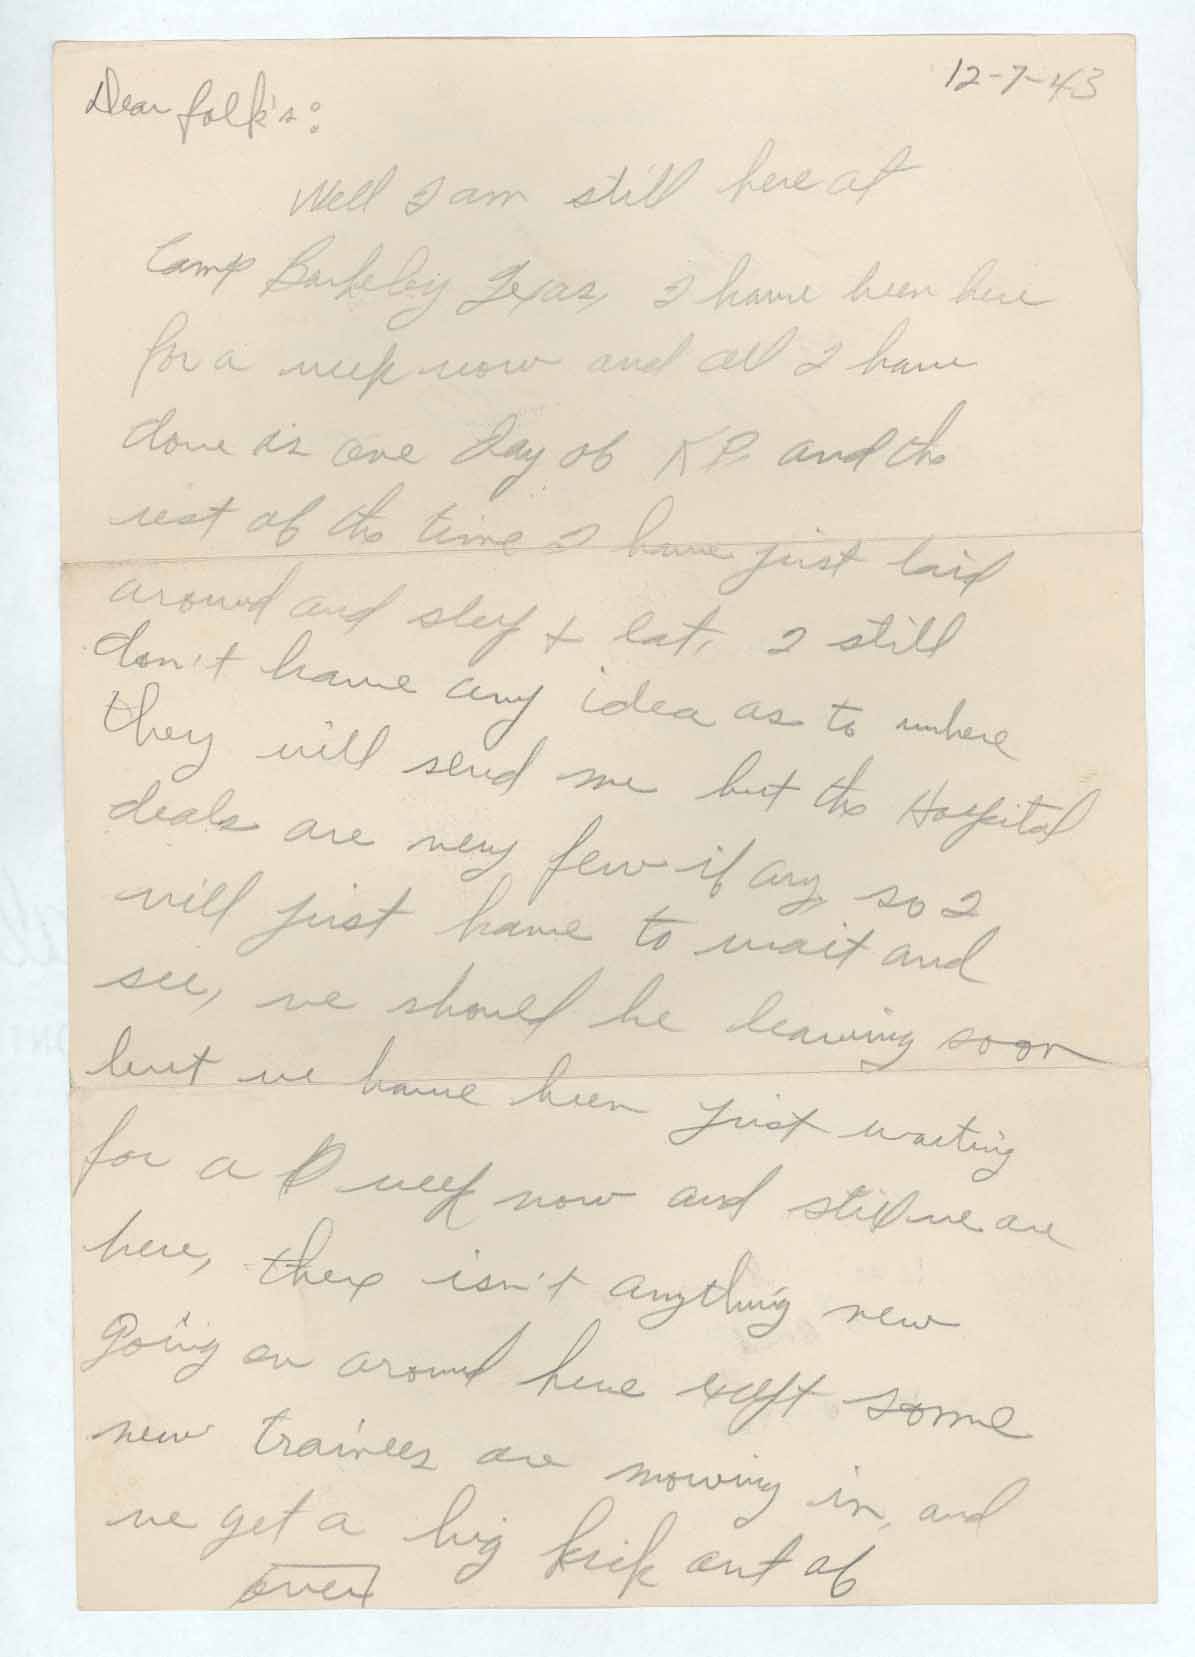 12-7-43
Dear folk's:
Well I am still here at
Camp Barkeley Texas, I have been here
for a week now and all I have
done is one day of KP. and the
rest of the time I have just laid
around and sleep + eat, I still
don't have any idea as to where
they will send me but the Hospital
deals are very few if any, so I
will just have to wait and
see, we should be leaving soon
but we have been just waiting
for a week now and still we are
here, there isn't anything new
Going on around here except some
new trainees are moving in, and
we get a big kick out of
over